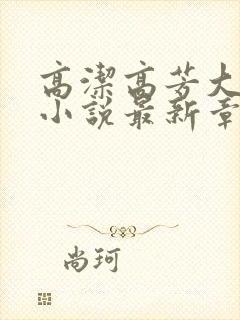 高潔高芳大
小說最新章
尚珂